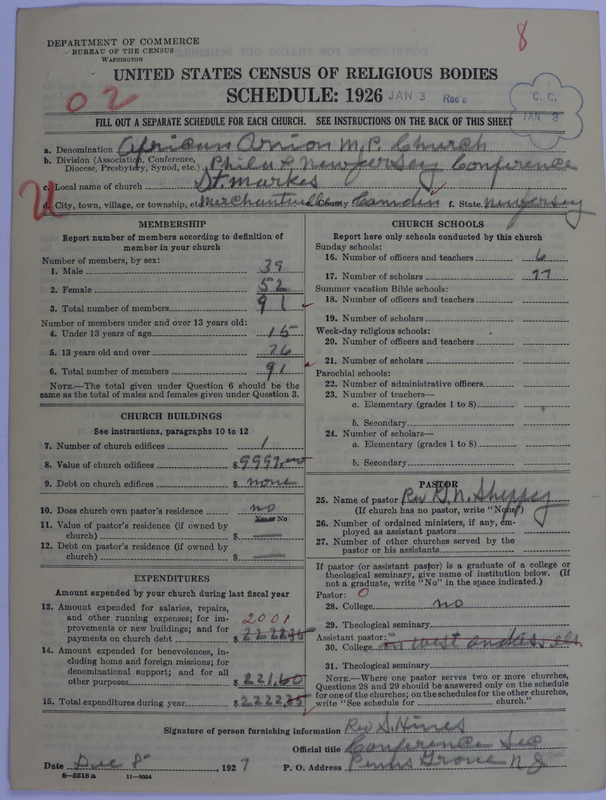 8
DEPARTMENT OF COMMERCE
BUREAU OF THE CENSUS
WASHINGTON
UNITED STATES CENSUS OF RELIGIOUS BODIES
SCHEDULE: 1926 JAN 3 Rec'd
C. C.
JAN 3
02
FILL OUT A SEPARATE SCHEDULE FOR EACH CHURCH. SEE INSTRUCTIONS ON THE BACK OF THIS SHEET
a. Denomination African Union M. P. Church
b. Division (Association, Conference,
Diocese, Presbytery, Synod, etc.) Phila & New Jersey Conference
c. Local name of church St. Markes
d. City, town, village, or township, etc. Merchantville County Camden f. State New Jersey
U
MEMBERSHIP
Report number of members according to definition of
member in your church
Number of members, by sex:
1. Male 39
2. Female 52
3. Total number of members 91
Number of members under and over 13 years old:
4. Under 13 years of age 15
5. 13 years old and over 76
6. Total number of members 91
NOTE.—The total given under Question 6 should be the
same as the total of males and females given under Question 3.
CHURCH BUILDINGS
See instructions, paragraphs 10 to 12
7. Number of church edifices 1
8. Value of church edifices $ 9997.00
9. Debt on church edifices $ none
10. Does church own pastor's residence no
Yes or No
11. Value of pastor's residence (if owned by
church) $ —
12. Debt on pastor's residence (if owned by
church) $ —
EXPENDITURES
Amount expended by your church during last fiscal year
13. Amount expended for salaries, repairs,
and other running expenses; for im-
provements or new buildings; and for
payments on church debt $ 2001
14. Amount expended for benevolences, in-
cluding home and foreign missions; for
denominational support; and for all
other purposes $ 221.60
15. Total expenditures during year $ 2222.75
CHURCH SCHOOLS
Report here only schools conducted by this church
Sunday schools:
16. Number of officers and teachers 6
17. Number of scholars 77
Summer vacation Bible schools:
18. Number of officers and teachers
19. Number of scholars
Week-day religious schools:
20. Number of officers and teachers
21. Number of scholars
Parochial schools:
22. Number of administrative officers
23. Number of teachers—
a. Elementary (grades 1 to 8)
b. Secondary
24. Number of scholars—
a. Elementary (grades 1 to 8)
b. Secondary
PASTOR
25. Name of pastor Rev G. N. Sheppy
(If church has no pastor, write "None")
26. Number of ordained ministers, if any, em-
ployed as assistant pastors
27. Number of other churches served by the
pastor or his assistants
If pastor (or assistant pastor) is a graduate of a college or
theological seminary, give name of institution below. (If
not a graduate, write "No" in the space indicated.)
Pastor: 0
28. College no
29. Theological seminary
Assistant pastor:
30. College
31. Theological seminary
NOTE.—Where one pastor serves two or more churches,
Questions 28 and 29 should be answered only on the schedule
for one of the churches; on the schedules for the other churches,
write "See schedule for church."
Signature of person furnishing information Rev S. Hines
Official title Conference Sec
Date Dec 8, 1927 P. O. Address Penns Grove N J
8—5518a 11—9034